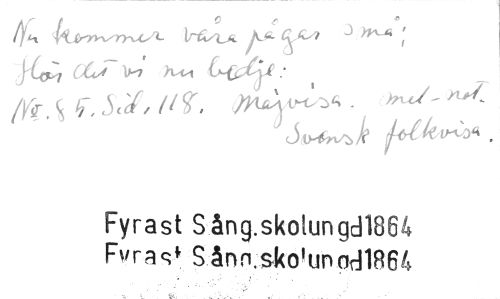 Nu kommer våra pågar små;
Hör det vi nu bedje:
No. 85. Sid. 118. Majvisa. mel-not.
Svensk folkvisa.
Fyrast Sång.skolungd1864
Fyrast Sång.skolungd1864